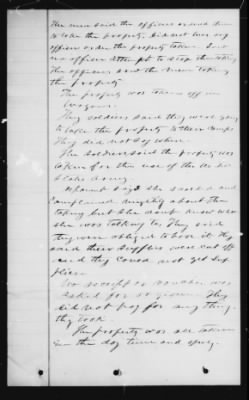 The men said the officer ordered them
to take the property. Did not hear any
officer order the property taken. Saw
no officer attempt to stop the taking
The officers saw the men taking
the property
The property was taken off in
wagons.
They soldiers said they were going
to take the property to their camps
They did not say where.
The soldiers said the property was
taken for the use of the
army.
Claimant says she scolded and
complained mightily about the
taking but she dont know who
she was talking to. They said
they were obliged to have it. They
said their supplies were cut off
and they could not get sup
plies.
No receipt or voucher was
asked for or given. They
did not pay for any thing
they took.
The property was all taken
in the day time and openly.